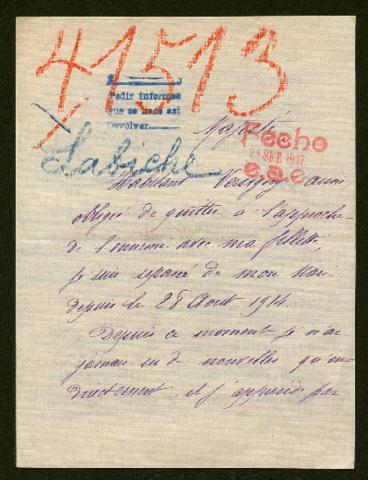 41513
Pedir informes
que se hace así
Devolver
Majesté
Fecho
21 SET. 1917
e.a.e.
Labiche
Habitant Aisne
obligée de quitter à l'approche
de l'ennemi avec ma fillette
je suis séparée de mon Mari
depuis le 28 Août 1914.
Depuis ce moment je n'ai
jamais eu de nouvelles qu'in
directement, et j'apprends par